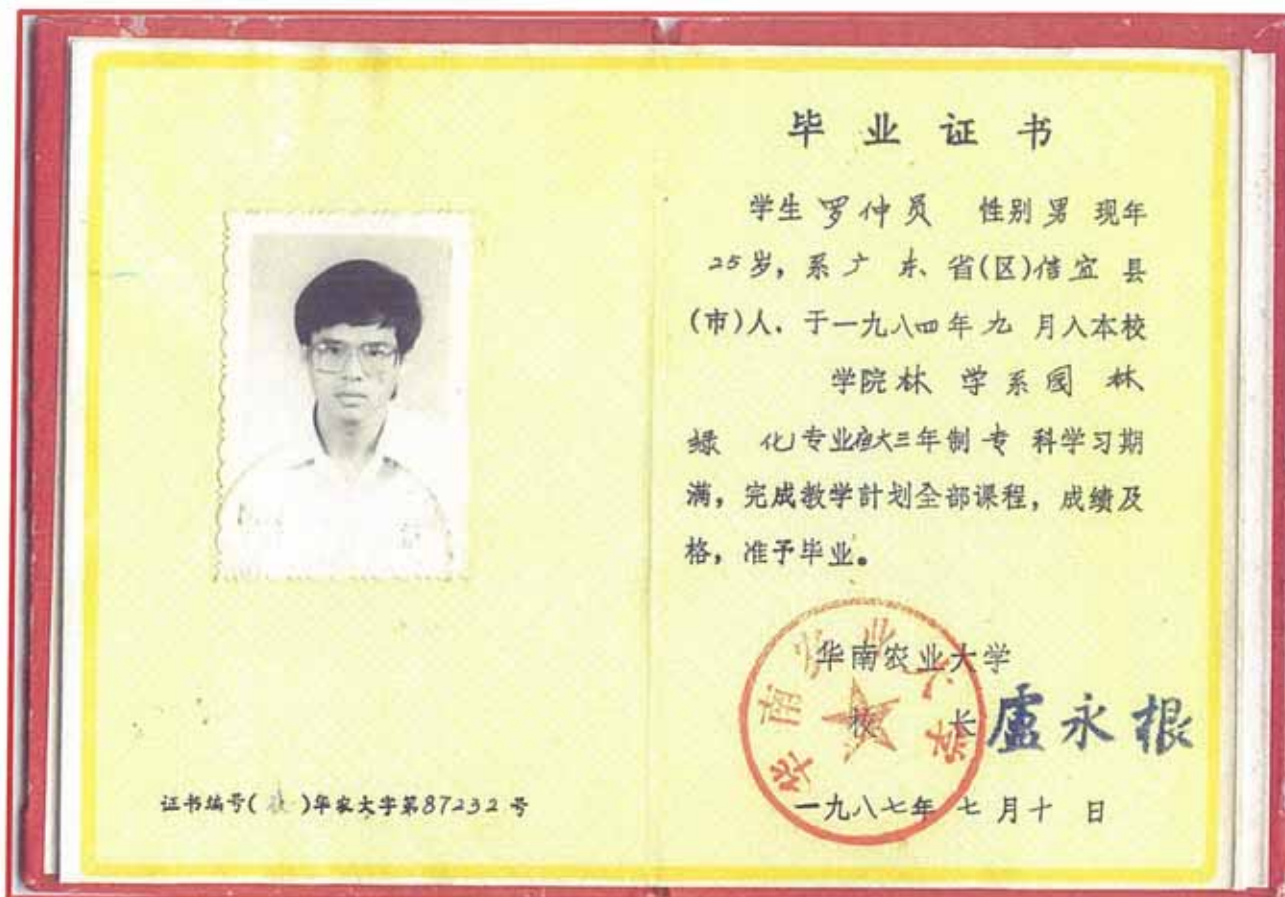 毕业证书
学生罗仲员 性别男 现年
25岁，系广东省(区)信宜县
(市)人、于一九八四年九月入本校
学院林学系园林
绿化专业夜大三年制专科学习期
满，完成教学計划全部课程，成绩及
格，准予毕业。
华南农业大学
华南农业大学
校长 盧永根
一九八七年七月十日
证书编号(夜)华农大字第87232号